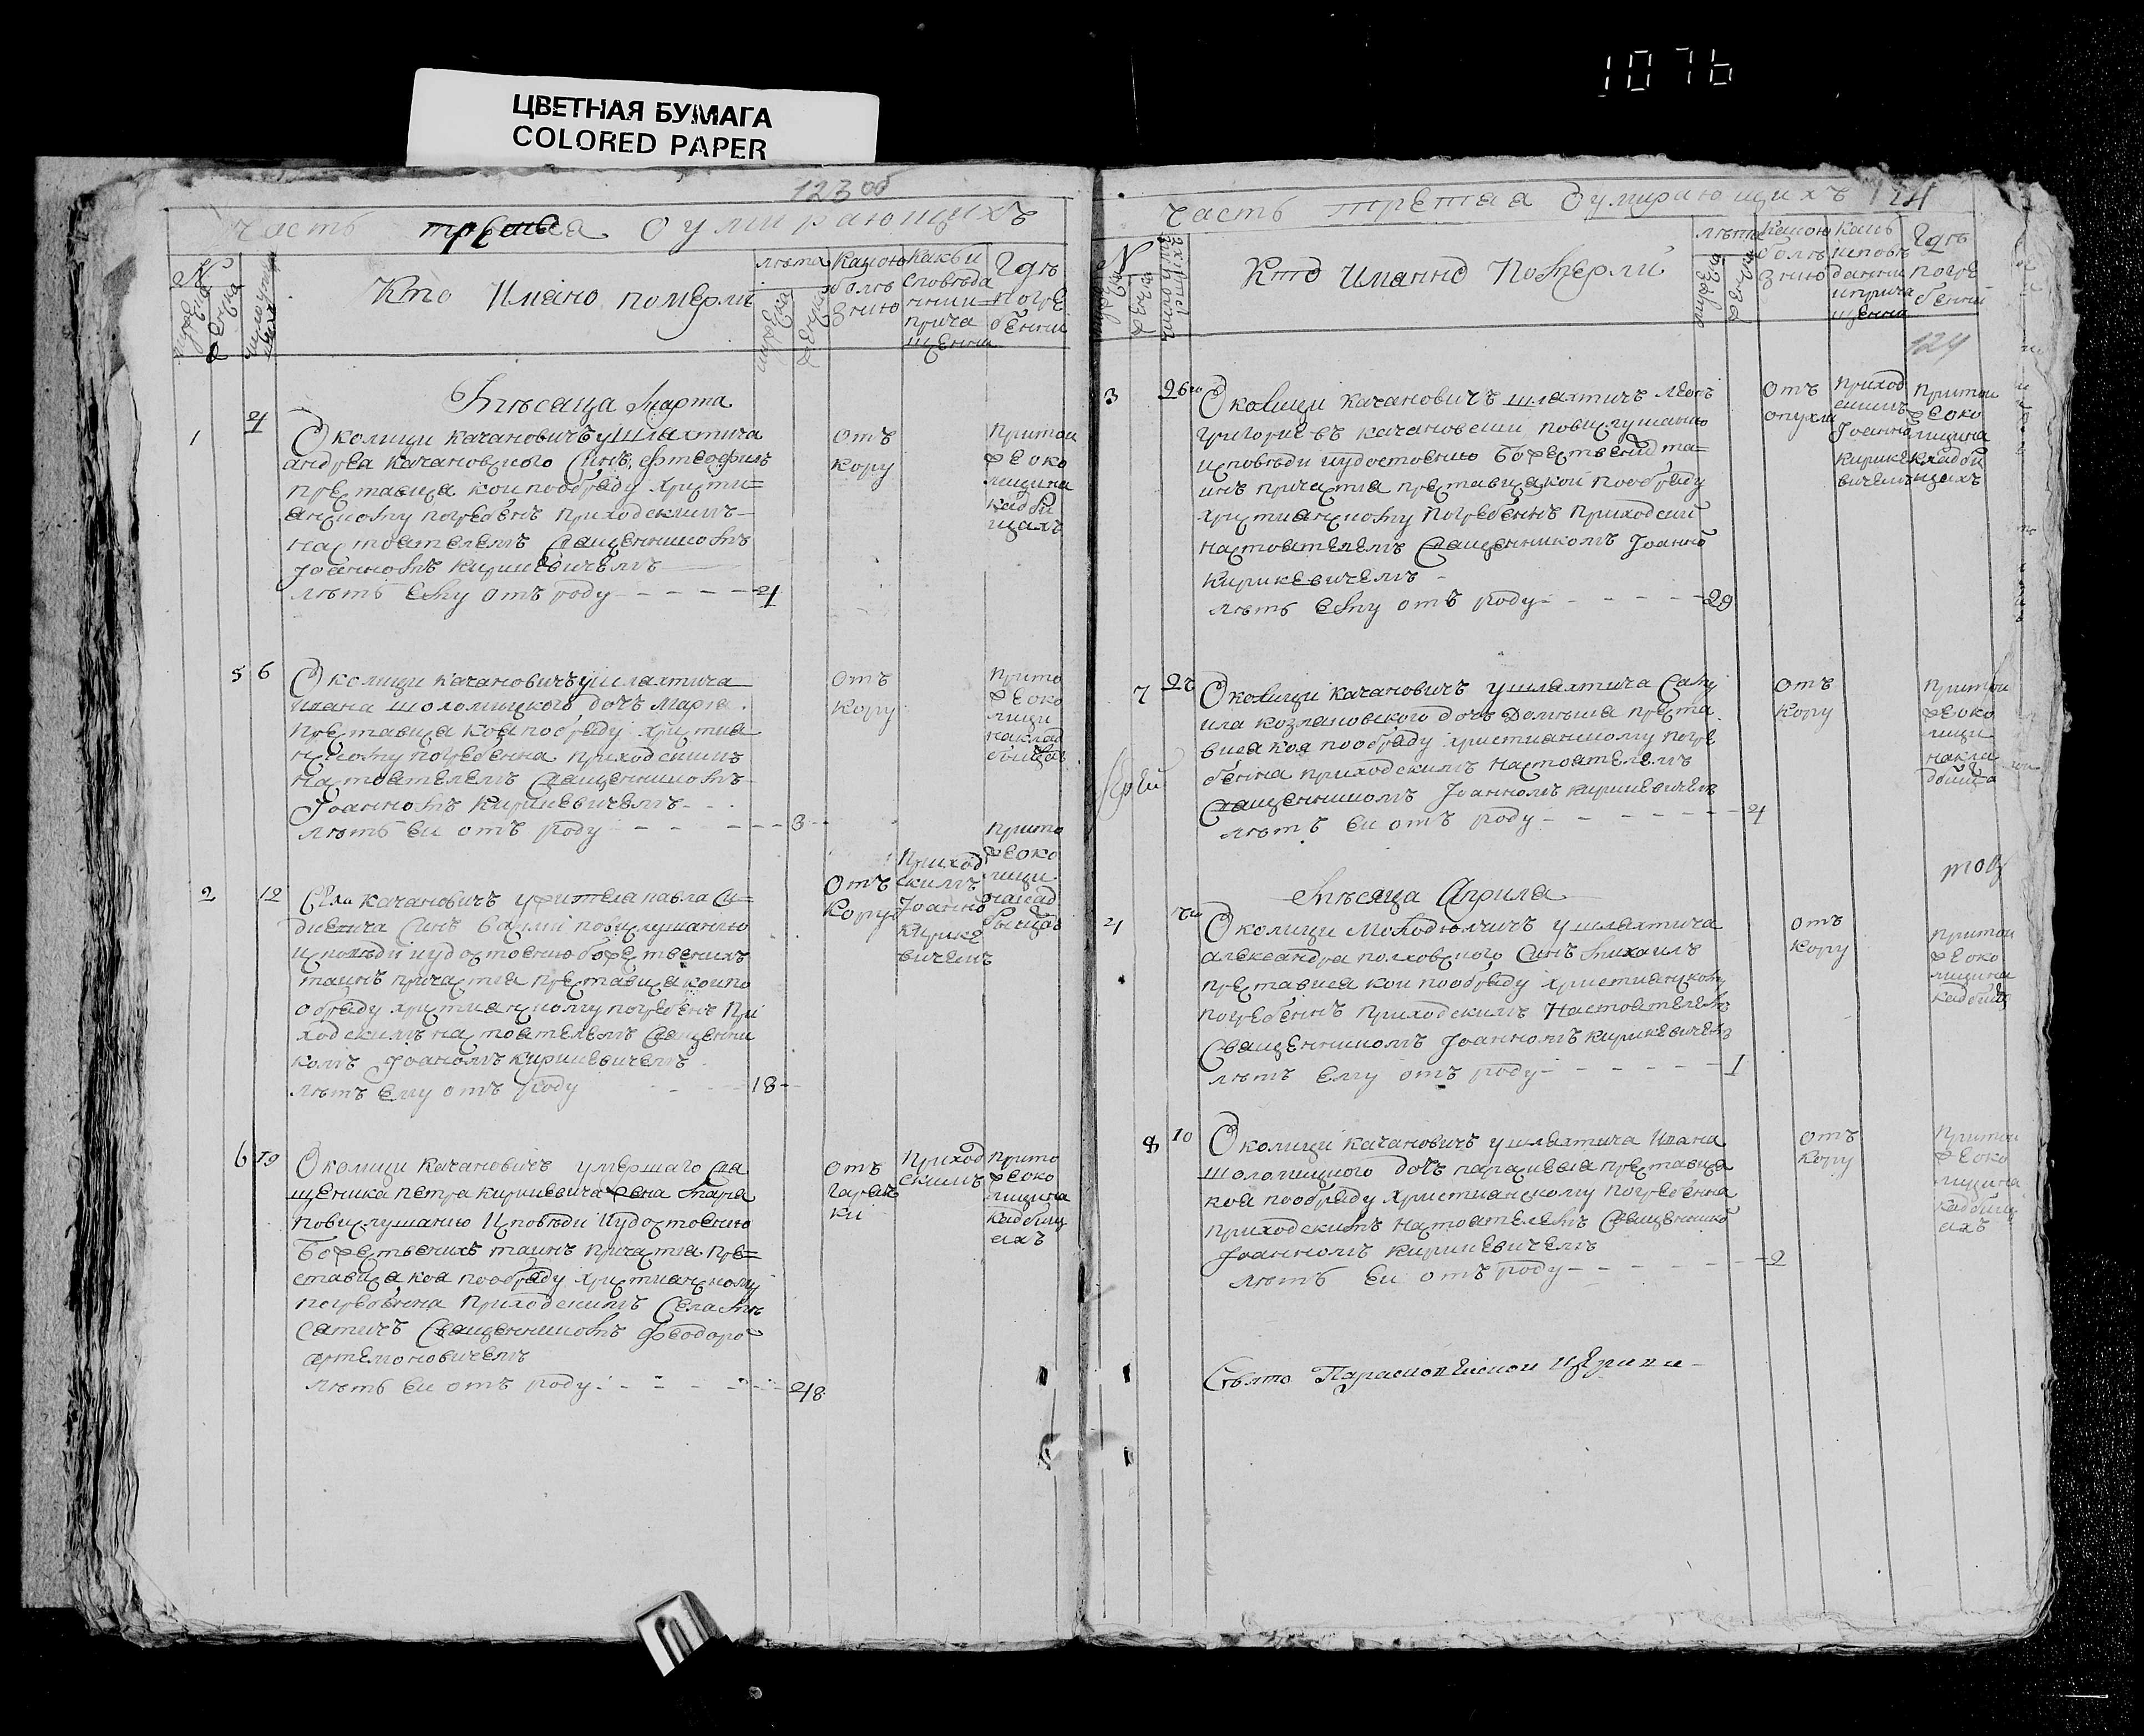 ЦВЕТНАЯ БУМАГА
COLORED PAPER
1076
123 об
часть третая о умирающихъ
N
Кто Имено померли
лѣта
какою болѣзнию
какъ и сповѣданни и причащенни
Гдѣ погребенни
Мѣсаца Марта
1
4
Околици качановичъ у шляхтича
андрея качановскаго Синъ,
преставися кои пообряду христи=
анскому погребенъ приходскимъ
настоятелемъ Священникомъ
Иоанномъ Кирикевичемъ
лѣтъ Ему отъ роду 4
отъ кору
при тои же околици на кладбищахъ
5 6
Околици качановичъ у шляхтича
Ивана шоломицкого дочъ Мария
преставися коя пообряду христиа
нскому погребенна приходскимъ
настоятелемъ Священникомъ
Иоанномъ Кирикевичемъ
лѣтъ Еи отъ роду 3
отъ кору
при то же околици на кладбищах
2 12
Села качановичъ у жителя павла
Синъ Василий повислушанию
исповѣди иудостоению божественихъ
таинъ причастия преставися кои по
обряду христианскому погребенъ При
ходскимъ настоятелемъ Священни
комъ Иоаномъ Кирикевичемъ
лѣтъ Ему отъ роду 18
Отъ Кору
Приходскимъ Иоанно Кирикевичемъ
при то же околици на кладбищах
6 19
Околици Качановичъ умершаго Свя
щеника петра кирикевича жена Мария
повислушанию Исповѣди Иудостоению
Божественихъ таинъ причастия пре=
ставися коя пообряду христианскому
погребенна Приходскимъ Села
Священникомъ Феодоро
артемоновичемъ
лѣтъ Еи отъ роду 48
отъ горячки
Приходскимъ
при то же околици на кладбищахъ
часть третая о умирающихъ 124
N
Кто Иманно Померли
лѣта
какою болѣзнию
какъ исповѣданни и причащенни
Гдѣ погребенни
124
3 26го
Околици качановичъ шляхтичъ Левъ
григориевъ качановский повислушанию
исповѣди иудостоению Божествених та=
инъ причастия преставися кой пообряду
христианскому погребеннъ приходский
настоятелемъ Священникомъ Иоанно
Кирикевичемъ
лѣтъ Ему отъ роду 29
Отъ опухли
приходскимъ Иоанно кирикевичемъ
при тои же околици на кладбищахъ
7 28
Околици качановичъ у шляхтича Саму
ила козлановского дочъ Домника преста
вися коя пообряду христианскому погре
бенна приходскимъ настоятелемъ
Священникомъ Иоанномъ кирикевичем
лѣтъ Еи отъ роду 4
Отъ Кору
при тои же околици на кладбища
Мѣсаца Априла
4
Околици Молодилчичъ у шляхтича
александра полховского Синъ Михаилъ
преставися кои пообряду христианскому
погребеннъ приходскимъ Настоятелемъ
Священникомъ Иоанномъ кирикевичемъ
лѣтъ Ему отъ роду 1
отъ кору
при тои же околици на кладбищ
8 10
Околици качановичъ у шляхтича Ивана
шоломицкого дочъ параскевия преставися
коя пообряду христианскому погребенна
приходскимъ настоятелемъ Священнико
Иоанномъ кирикевичемъ
лѣтъ Еи отъ роду 2
отъ кору
при тои же околици на кладбищахъ
Свято Параскевиской церкви